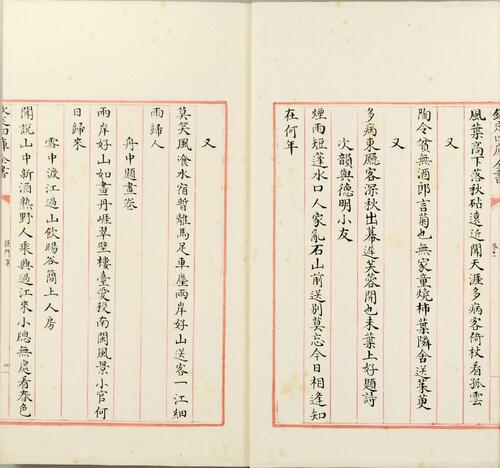 風葉高下落秋砧遠近聞天涯多病客倚杖看孤雲
又
陶令貧無酒郎言菊也無家童燒柿葉隣舍送茱萸
又
多病東廳客深秋出幕遲芙蓉開也未葉上好題詩
次韻與德明小友
煙雨短蓬水口人家亂石山前送别莫忘今日相逢知
在何年
又
莫笑風飡水宿暫離馬足車塵兩岸好山送客一江細
雨歸人
舟中題畫卷
兩岸好山如畫丹崖翠壁樓臺愛我南閩風景小官何
日歸來
雪中渡江過山飲暘谷簡上人房
聞說山中新酒熟野人乘興過江來小牕無處看春色